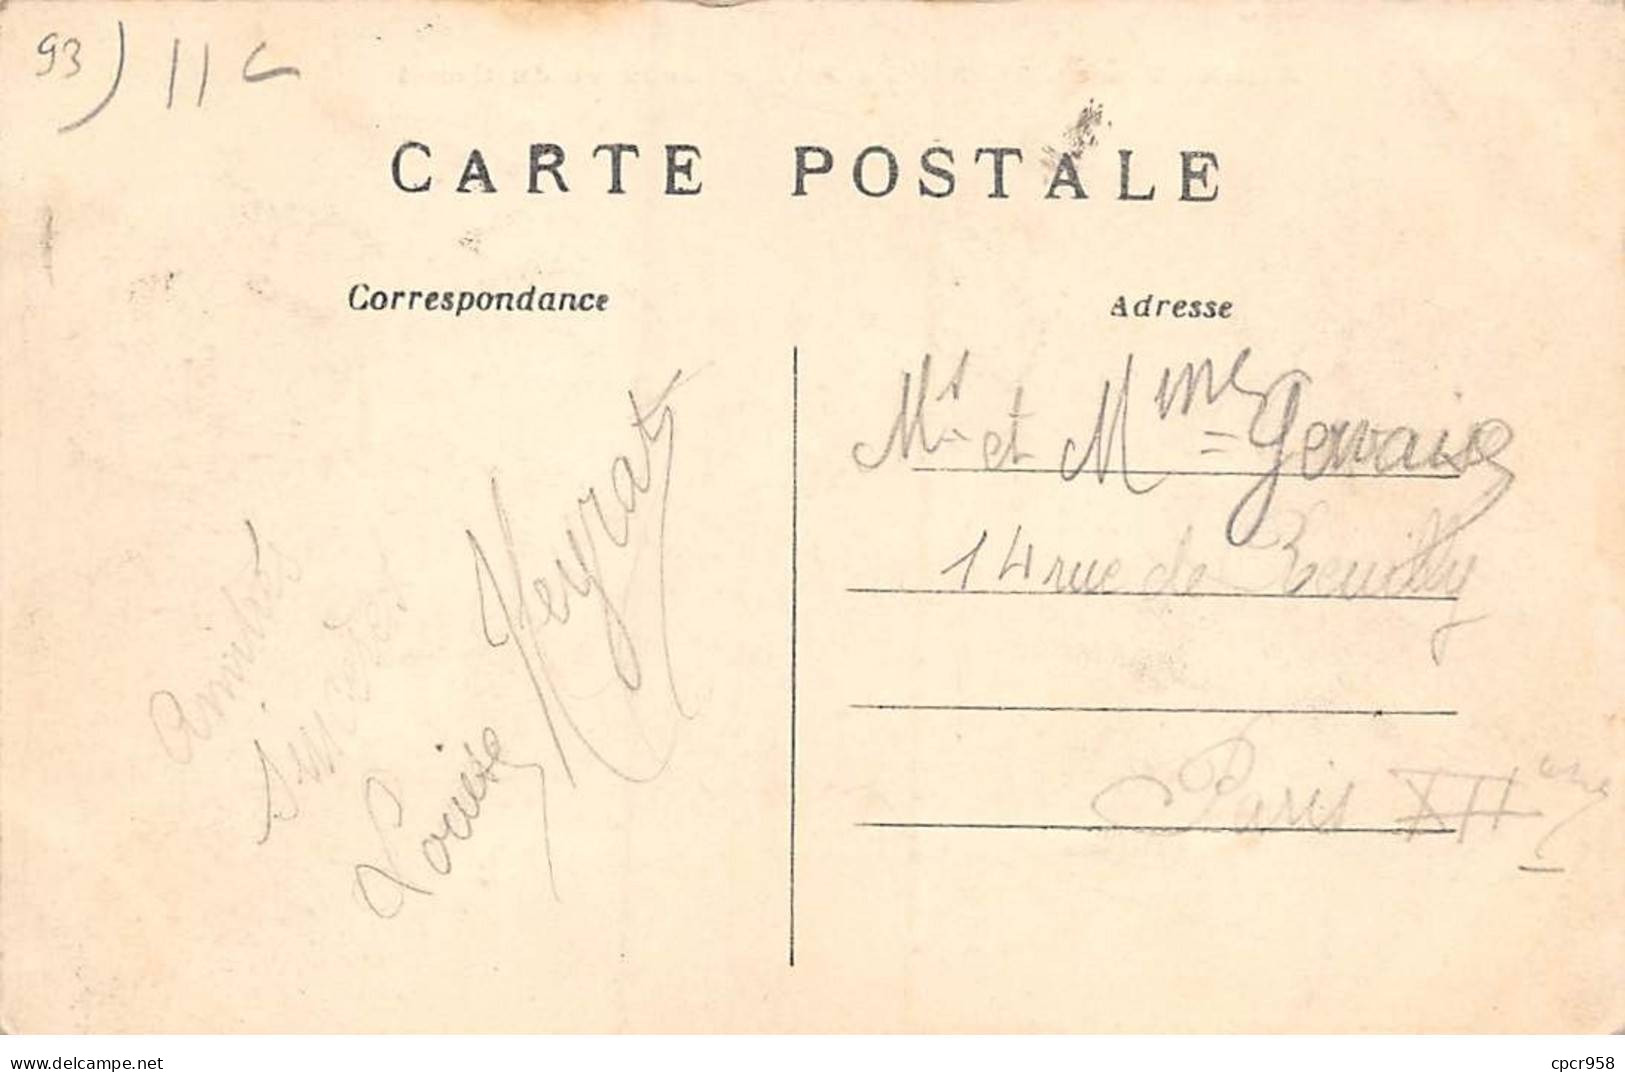 93) 11 C
CARTE POSTALE
Correspondance
Amitiés
Sincères
Louise
Meyrat
Adresse
Mr et Mme Gervaise
14 rue de Reuilly
Paris XIIème
delcampe.net
cpcr958